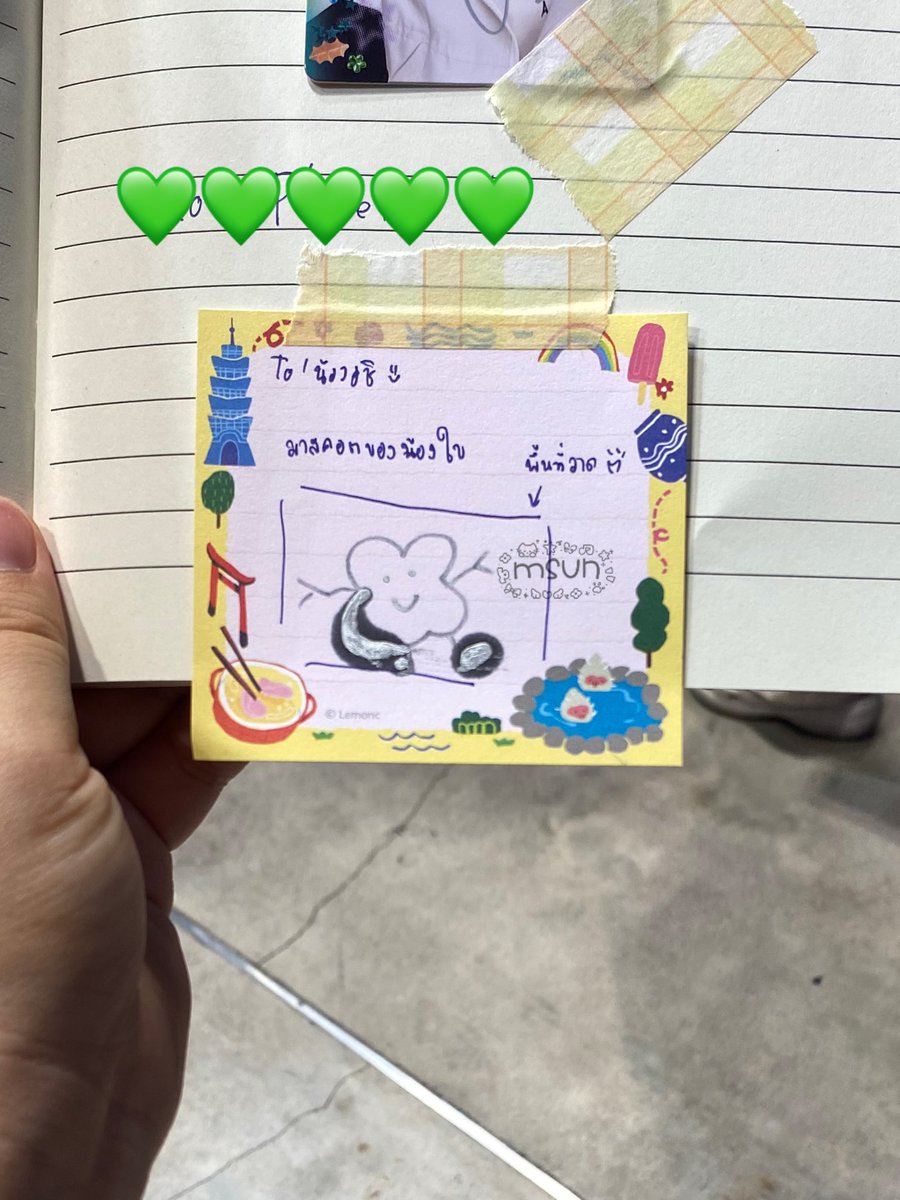 To' น้องอชิ
มาสคอตของน้องใบ
พื้นที่วาด
msun
© Lemonc